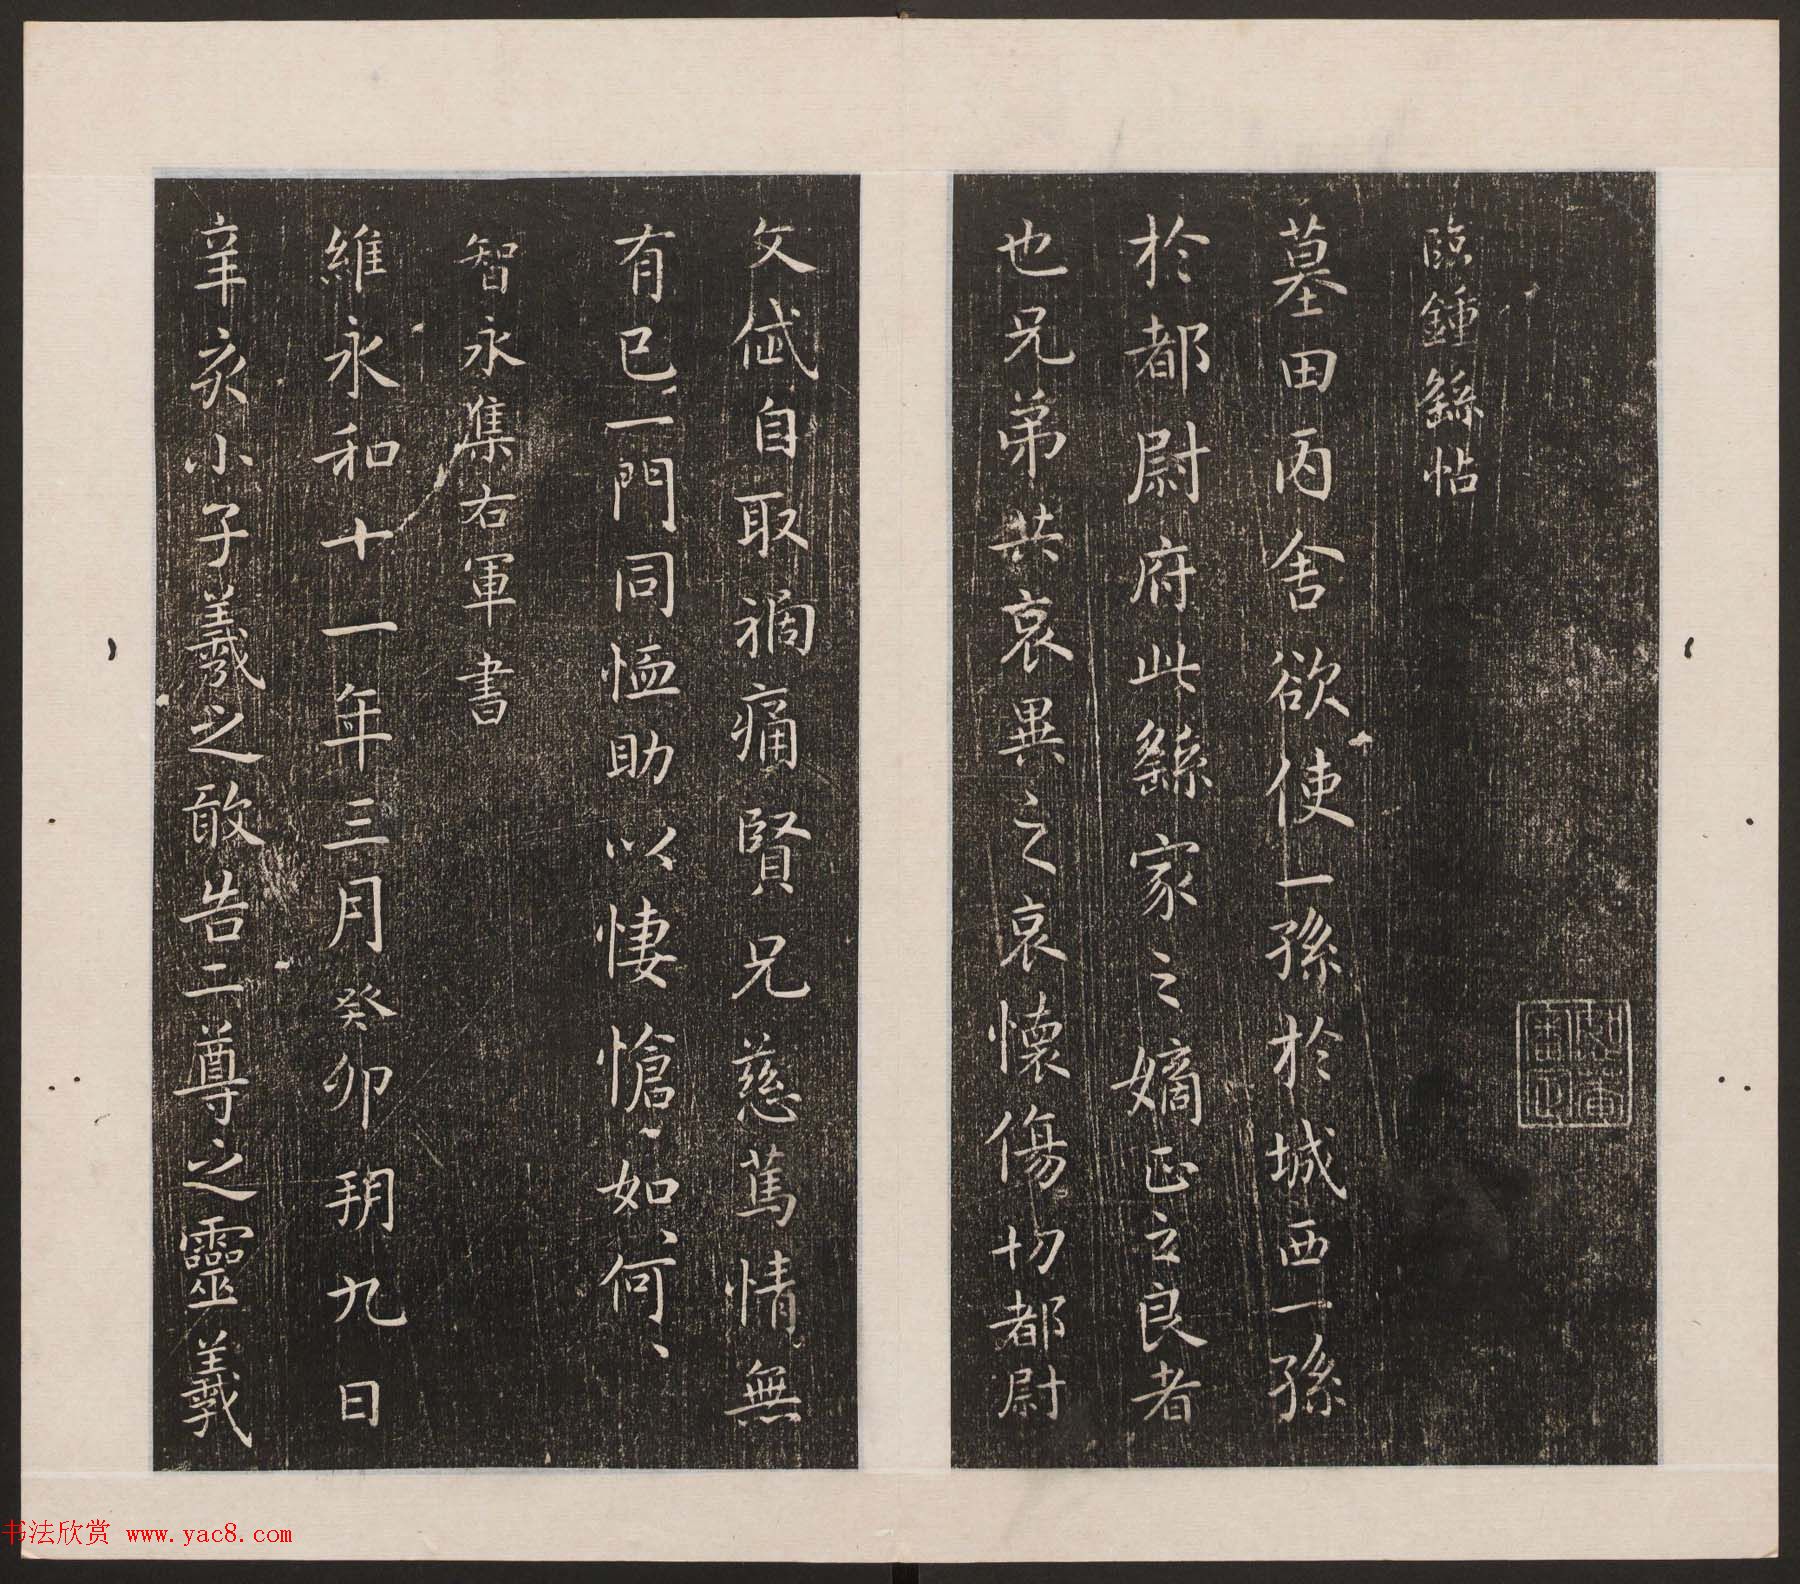 臨鍾繇帖
墓田丙舍欲使一孫於城西一孫
於都尉府此繇家之嫡正之良者
也兄弟共哀異之哀懷傷切都尉
文岱自取禍痛賢兄慈篤情無
有已一門同恤助以悽愴如、何、
智永集右軍書
維永和十一年三月癸卯朔九日
辛亥小子羲之敢告二尊之靈羲
书法欣赏 www.yac8.com